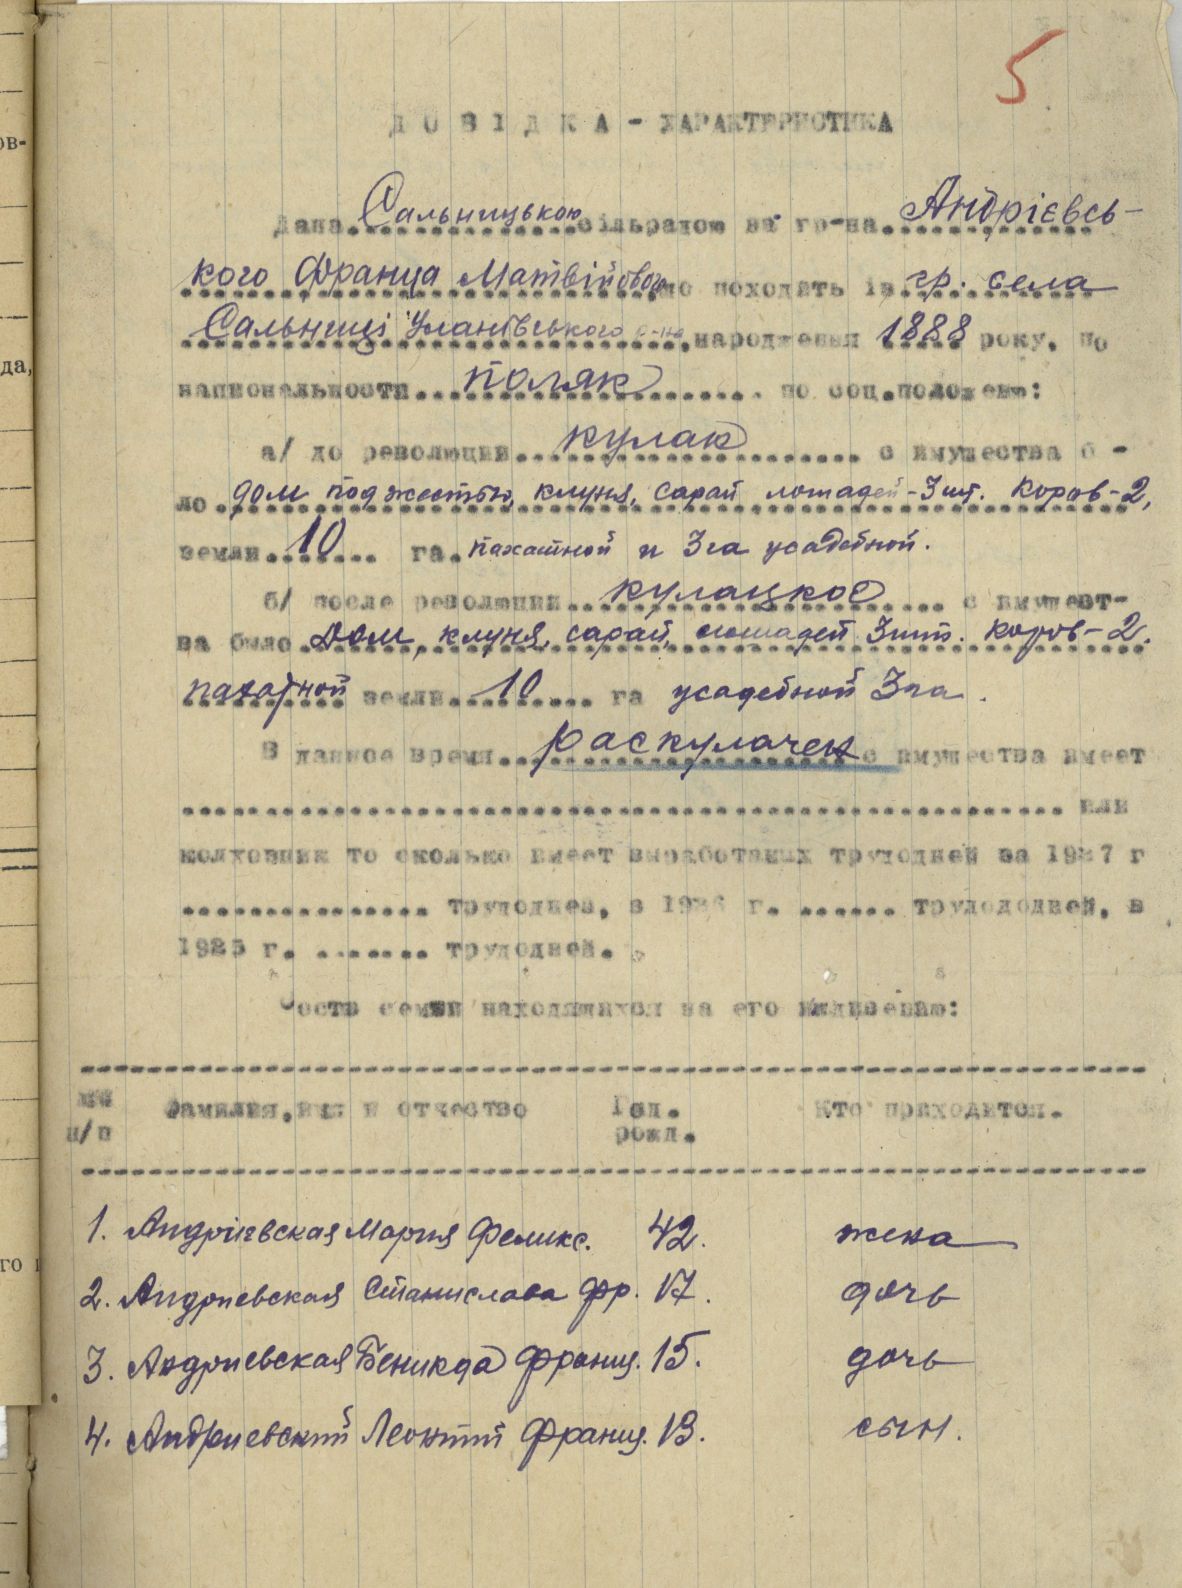 5
ДОВІДКА - ХАРАКТЕРИСТИКА
Дана Сальницькою сільрадою на гр-на Андрієвсь-
кого Франца Матвійового що походить із гр. села
Сальниці Уланівського р-на, народження 1888 року, по
национальности поляк по соц.положению:
а/ до революции кулак с имущества б -
ло дом под жестью, клуня, сарай лошадей-3 шт. коров-2,
земли 10 га. пахатной и 3 га усадебной.
б/ после революции кулацкое с имущест-
ва было дом, клуня, сарай, лошадей 3 шт. коров-2.
пахатной земли 10 га усадебной 3 га.
В данное время раскулачен с имущества имеет
или
колховник то сколько имеет выработаных трудодней за 1937 г
трудодней, в 1936 г. трудододней, в
1935 г. трудодней.
Соств семьи находящихся на его иждивению:
№№ Фамилия, имя и отчество Год. Кто приходится.
п/п рожд.
1. Андріевская Мария Феликс. 42. жена
2. Андриевская Станислава Фр. 17. дочь
3. Андриевская Беникда Франц. 15. дочь
4. Андриевский Леонтий Франц. 13. сын.
ов-
да,
го